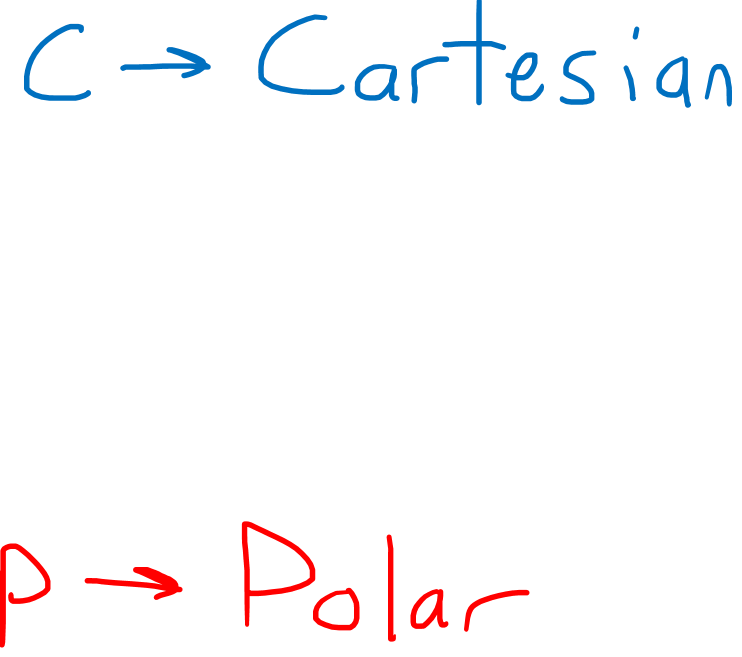 C → Cartesian
P → Polar